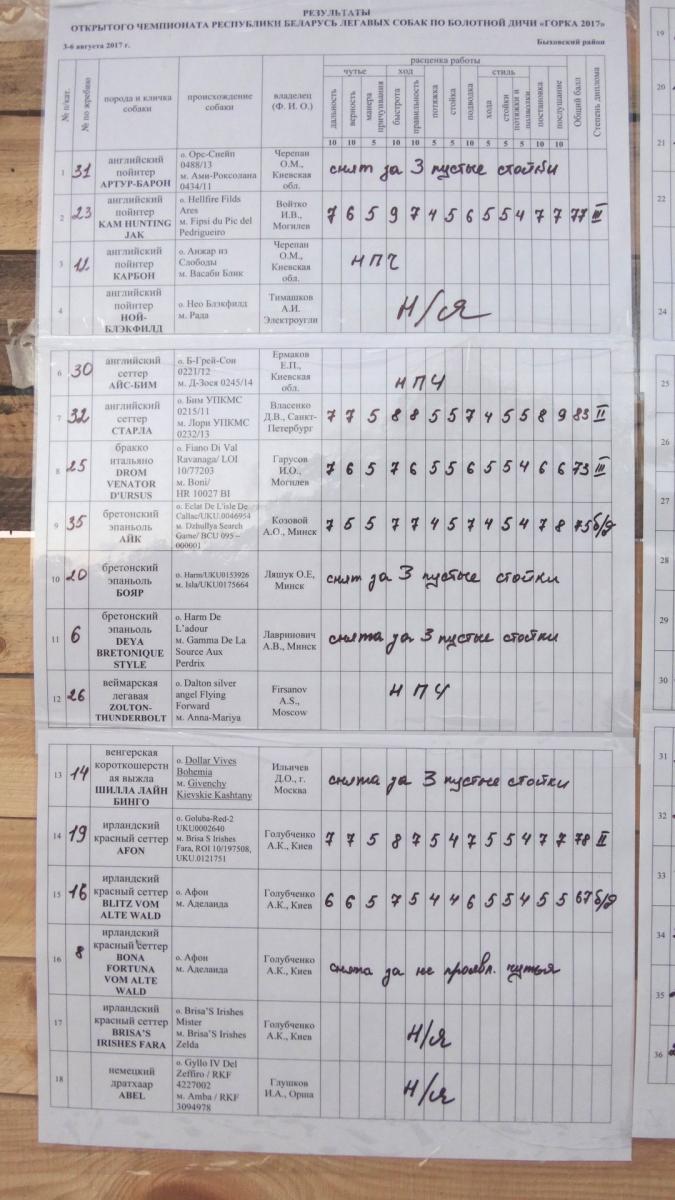 РЕЗУЛЬТАТЫ
ОТКРЫТОГО ЧЕМПИОНАТА РЕСПУБЛИКИ БЕЛАРУСЬ ЛЕГАВЫХ СОБАК ПО БОЛОТНОЙ ДИЧИ «ГОРКА 2017»
3-6 августа 2017 г. Быховский район
№ п/кат. № по жребию порода и кличка собаки происхождение собаки владелец (Ф. И. О.) расценка работы
чутье ход стиль
дальность верность манера причуивания быстрота правильность потяжка стойка подводка хода стойки потяжки и подводки постановка послушание Общий балл Степень диплома
10 10 5 10 10 5 5 10 5 5 5 10 10 100
1 31 английский пойнтер АРТУР-БАРОН о. Орс-Снейп 0488/13 м. Ами-Роксолана 0434/11 Черепан О.М., Киевская обл. снят за 3 пустые стойки
2 23 английский пойнтер KAM HUNTING JAK о. Hellfire Filds Ares м. Fipsi du Pic del Pedrigueiro Войтко И.В., Могилев 7 6 5 9 7 4 5 6 5 5 4 7 7 77 III
3 12 английский пойнтер КАРБОН о. Анжар из Слободы м. Васаби Блик Черепан О.М., Киевская обл. НПЧ
4 английский пойнтер НОЙ-БЛЭКФИЛД о. Нео Блэкфилд м. Рада Тимашков А.И. Электроугли Н/Я
6 30 английский сеттер АЙС-БИМ о. Б-Грей-Сон 0221/12 м. Д-Зося 0245/14 Ермаков Е.П., Киевская обл. НПЧ
7 32 английский сеттер СТАРЛА о. Бим УПКМС 0215/11 м. Лори УПКМС 0232/13 Власенко Д.В., Санкт-Петербург 7 7 5 8 8 5 5 7 4 5 5 8 9 83 II
8 25 бракко итальяно DROM VENATOR D'URSUS о. Fiano Di Val Ravanaga/ LOI 10/77203 м. Boni/ HR 10027 BI Гарусов И.О., Могилев 7 6 5 7 6 5 5 6 5 5 4 6 6 73 III
9 35 бретонский эпаньоль АЙК о. Eclat De L'isle De Callac/UKU.0046954 м. Dzhullya Search Game/ BCU 095 – 000001 Козовой А.О., Минск 7 5 5 7 7 4 5 7 4 5 4 7 8 75 б/д
10 20 бретонский эпаньоль БОЯР о. Harm/UKU0153926 м. Isla/UKU0175664 Ляшук О.Е, Минск снят за 3 пустые стойки
11 6 бретонский эпаньоль DEYA BRETONIQUE STYLE о. Harm De L'adour м. Gamma De La Source Aux Perdrix Лавринович А.В., Минск снята за 3 пустые стойки
12 26 веймарская легавая ZOLTON-THUNDERBOLT о. Dalton silver angel Flying Forward м. Anna-Mariya Firsanov A.S., Moscow НПЧ
13 14 венгерская короткошерстная выжла ШИЛЛА ЛАЙН БИНГО о. Dollar Vives Bohemia м. Givenchy Kievskie Kashtany Ильичев Д.О., г. Москва снята за 3 пустые стойки
14 19 ирландский красный сеттер AFON о. Goluba-Red-2 UKU0002640 м. Brisa S Irishes Fara, ROI 10/197508, UKU.0121751 Голубченко А.К., Киев 7 7 5 8 7 5 4 7 5 5 4 7 7 78 II
15 16 ирландский красный сеттер BLITZ VOM ALTE WALD о. Афон м. Аделаида Голубченко А.К., Киев 6 6 5 7 5 4 4 6 5 5 4 5 5 67 б/д
16 8 ирландский красный сеттер BONA FORTUNA VOM ALTE WALD о. Афон м. Аделаида Голубченко А.К., Киев снята за не проявл. чутья
17 ирландский красный сеттер BRISA'S IRISHES FARA о. Brisa'S Irishes Mister м. Brisa'S Irishes Zelda Голубченко А.К., Киев Н/Я
18 немецкий дратхаар ABEL о. Gyllo IV Del Zeffiro / RKF 4227002 м. Amba / RKF 3094978 Глушков И.А., Орша Н/Я
19
20
21
22
24
25
26
27
28
29
30
31
32
33
34
35
36